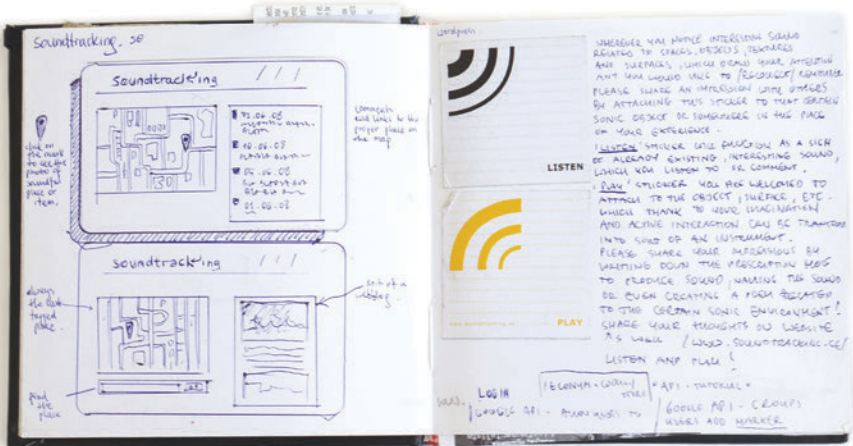 soundtracking. se
soundtracking
click on
the mark
to see the
photo of
soundful
place or
item.
10.06.08
05.06.08
01.06.08
comments
and links to the
proper place on
the map
soundtracking
always
the last
tagged
place.
find
the
place
sort of a
weblog.
LISTEN
PLAY
WHEREVER YOU NOTICE INTERESTING SOUND
RELATED TO SPACES, OBJECTS, TEXTURES
AND SURFACES, WHICH DRAW YOUR ATTENTION
AND YOU WOULD LIKE TO /RECOLLECT/ REMEMBER
PLEASE SHARE AN IMPRESSION WITH OTHERS
BY ATTACHING THIS STICKER TO THAT CERTAIN
SONIC OBJECT OR SOMEWHERE IN THE PLACE
OF YOUR EXPERIENCE.
'LISTEN' STICKER WILL FUNCTION AS A SIGN
OF ALREADY EXISTING, INTERESTING SOUND,
WHICH YOU LISTEN TO OR COMMENT.
'PLAY' STICKER YOU ARE WELCOMED TO
ATTACH TO THE OBJECT, SURFACE, ETC.
WHICH THANK TO YOUR IMAGINATION
AND ACTIVE INTERACTION CAN BE
INTO SORT OF AN INSTRUMENT.
PLEASE SHARE YOUR IMPRESSIONS BY
WRITING DOWN THE PRESCRIPTION HOW
TO PRODUCE SOUND, NAMING THE SOUND
OR EVEN CREATING A POEM RELATED
TO THE CERTAIN SONIC ENVIRONMENT!
SHARE YOUR THOUGHTS ON WEBSITE
AS WELL /WWW.SOUNDTRACKING.SE/
LISTEN AND PLAY!
LOG IN
API - TUTORIAL
GOOGLE API - ALLOW USERS TO
GOOGLE API - GROUPS
USERS ADD MARKER